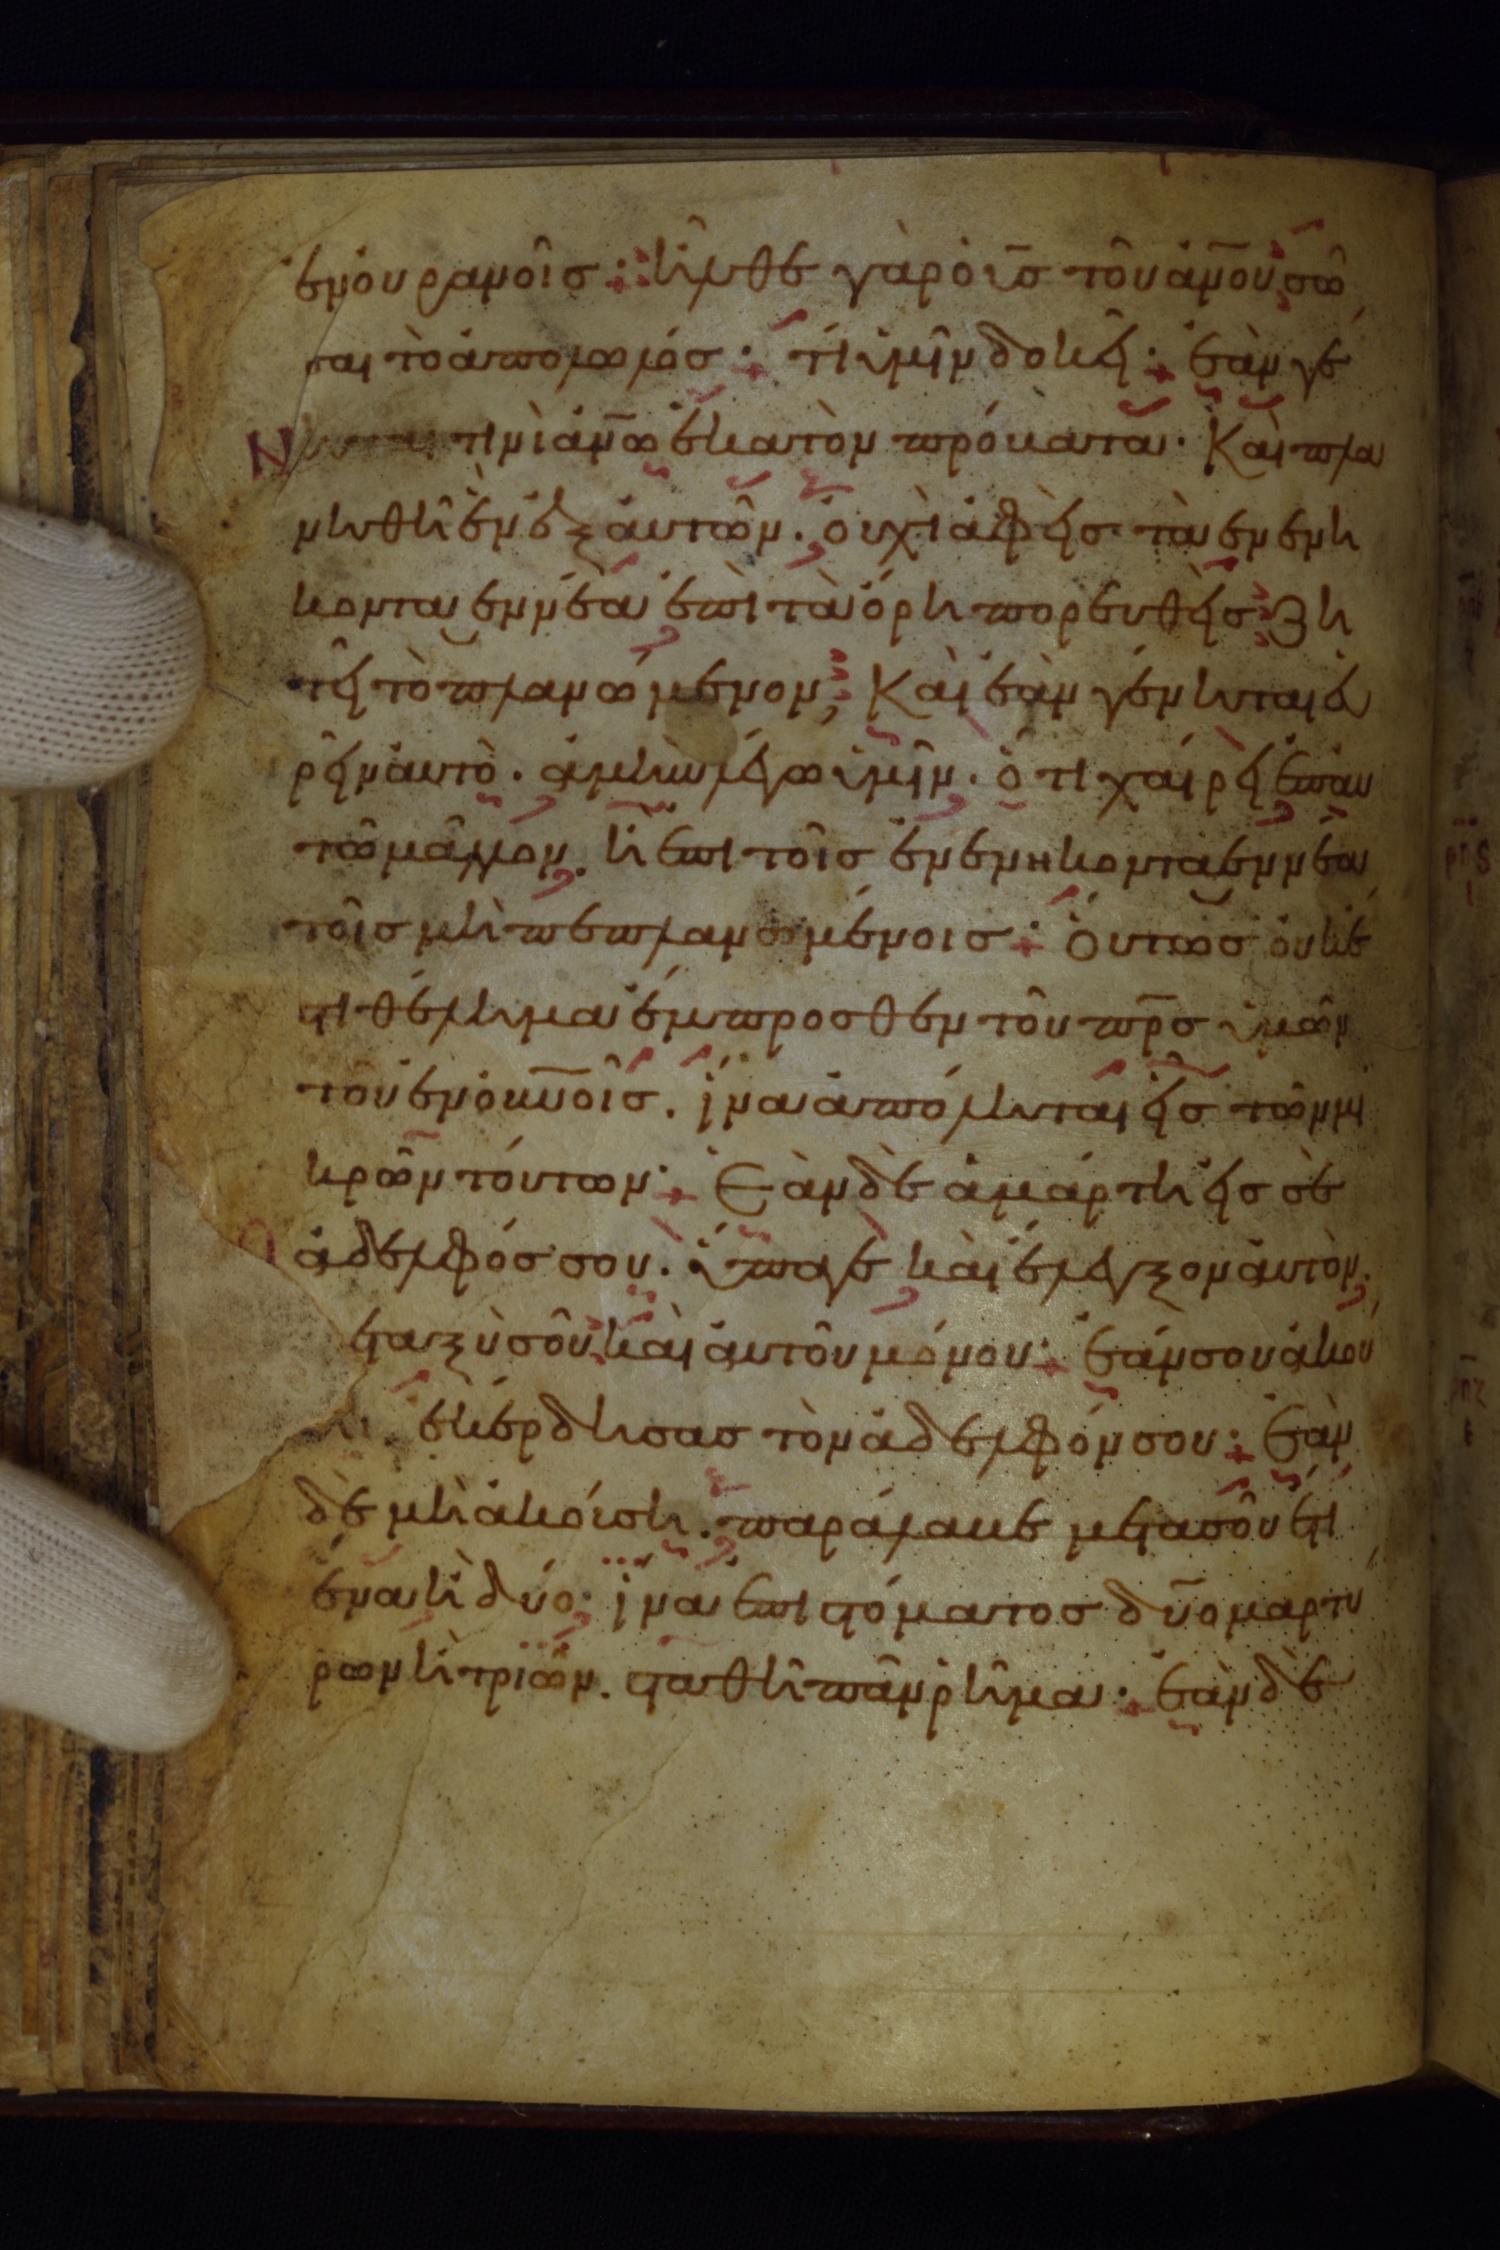 ἐν οὐρανοῖσ· ἦλθε γὰρ ὁ υ̅σ τοῦ ἀν̅ου σῶ
σαι τὸ ἀπολωλόσ· τί ὑμῖν δοκεῖ· ἐὰν γέ
τινὶ ἀν̅ω ἑκατὸν πρόβατα· Καὶ πλα
νηθῆ ἓν ἐξ αὐτῶν· οὐχὶ ἀφεὶσ τὰ ἐνενη
κονταεννέα ἐπὶ τὰ ὄρη πορευθεὶσ ζη
τεῖ τὸ πλανώμενον; Καὶ ἐὰν γένηται εὑ
ρεῖν αὐτὸ· ἀμὴν λέγω ὑμῖν· ὅτι χαίρει ἐπ αυ
τῶ μᾶλλον. ἢ ἐπι τοῖσ ἐνενηκονταεννέα
τοῖσ μὴ πεπλανωμένοισ· Οὕτωσ οὐκ ἔ
στι θέλημα ἔμπροσθεν τοῦ πρ̅σ ὑμῶν
τοῦ ἐν οὐν̅οῖσ. ἵνα ἀπόληται εἷσ τῶν μι
κρῶν τούτων· Ἐὰν δὲ ἁμάρτη εἰσ σὲ
ὁ ἀδελφόσ σου· ὕπαγε καὶ ἔλεγξον αὐτὸν
ταξὺ σοῦ καὶ αὐτοῦ μόνου· ἐάν σου ἀκού
ἐκέρδησασ τὸν ἀδελφόν σου· ἐὰν
δὲ μὴ ἀκούση. παράλαβε μετα σοῦ ἔτι
ἕνα ἢ δύο· ἵνα ἐπι στόματοσ δύο μαρτύ
ρων ἢ τριῶν. σταθῆ πᾶν ῥῆμα· ἐὰν δὲ